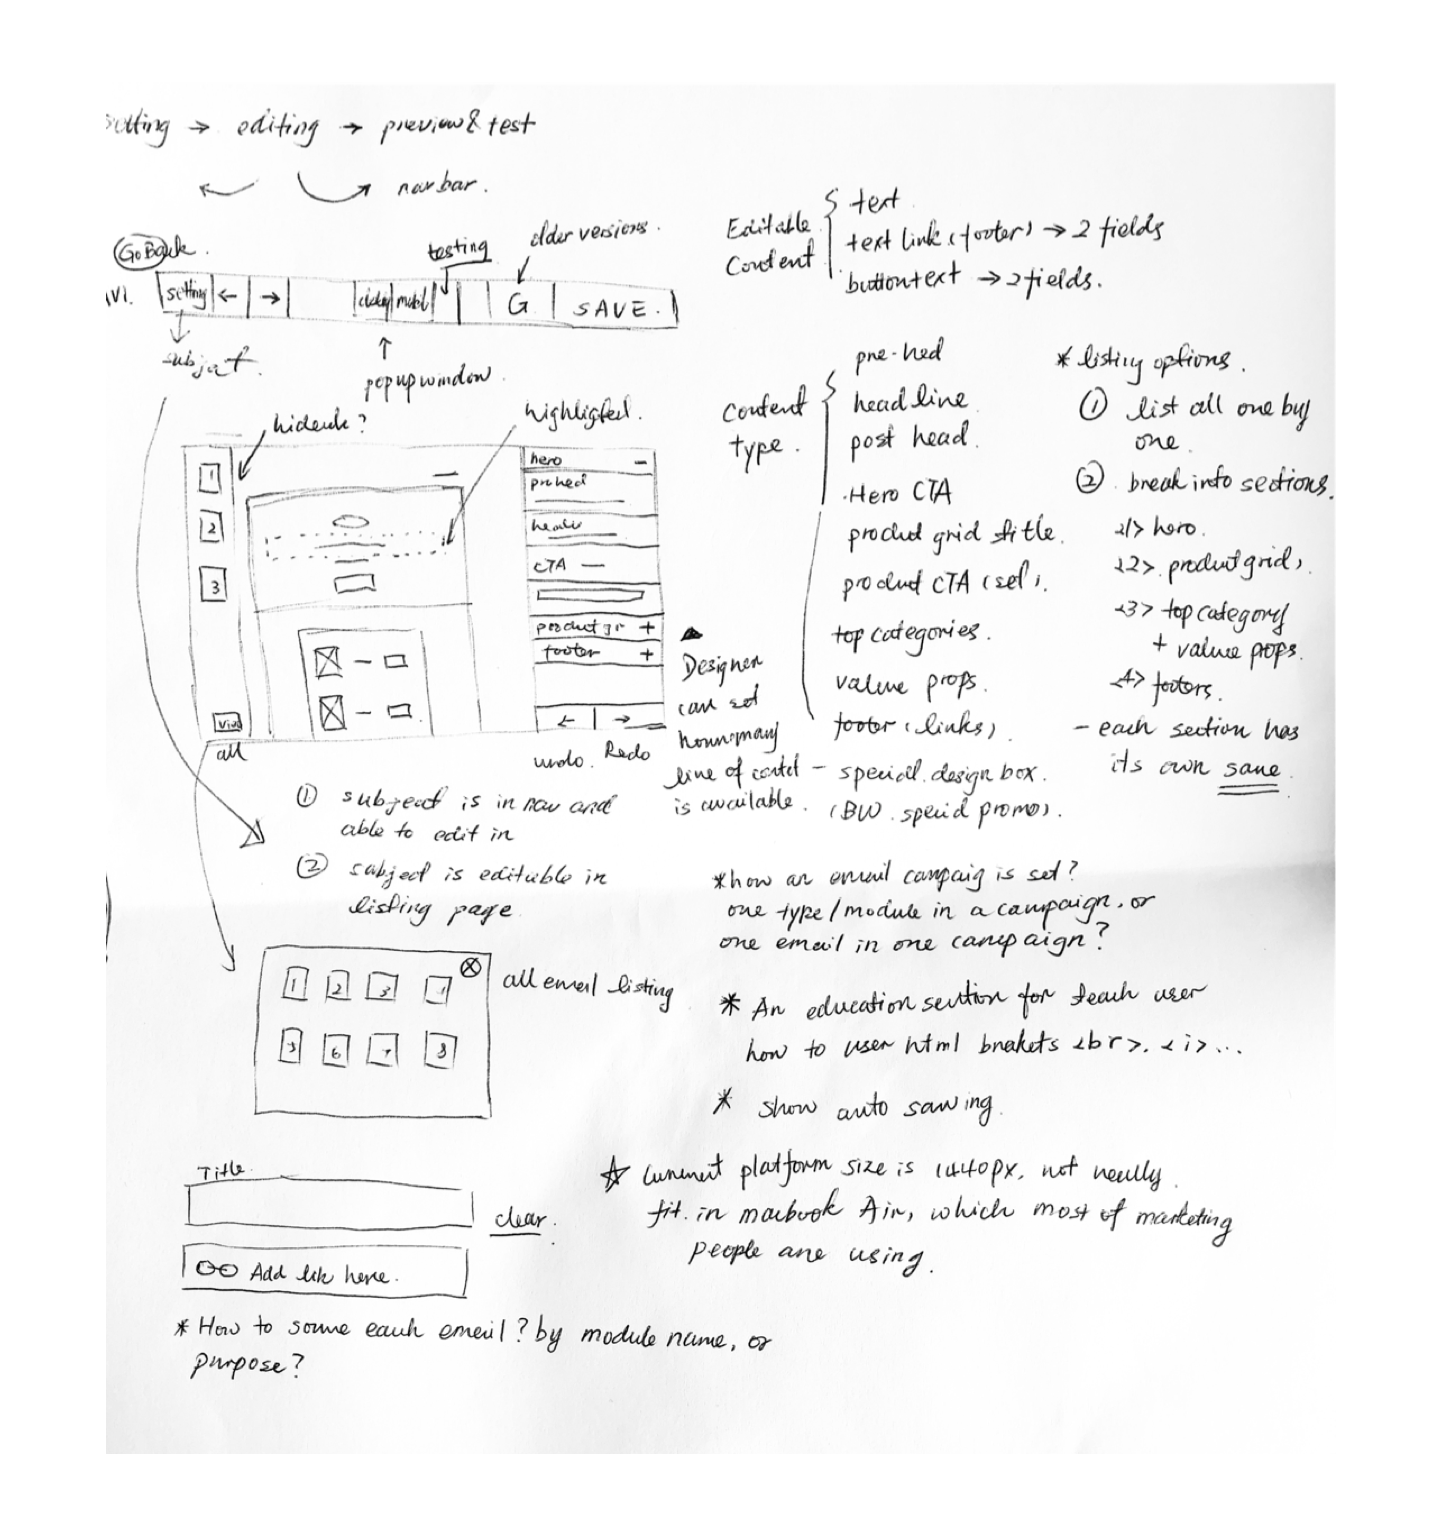 setting → editing → preview & test
nav bar.
Go Back.
testing
older versions.
V1.
setting
←
→
G
SAVE.
subject.
popup window.
hide nh?
highlighted.
1
2
3
View
all
hero −
prehed
header
CTA —
product gr +
footer +
←
→
undo. Redo
Designer
can set
how many
line of content
is available.
① subject is in nav and
able to edit in
② subject is editable in
listing page
1 2 3 4
5 6 7 8
all email listing
Title.
clear.
Add link here.
* How to some each email? by module name, or
purpose?
Editable
Content
text
text link (footer) → 2 fields
button text → 2 fields.
Content
type.
pre-hed
headline
post head.
Hero CTA
product grid title.
product CTA (set).
top categories.
value props.
footer (links).
- special design box.
(BW. special promo).
* listing options.
① list all one by
one.
② break into sections.
<1> hero.
<2>. product grid,
<3> top category
+ value props.
<4> footers.
- each section has
its own save.
* how an email campaig is set?
one type/module in a campaign, or
one email in one campaign?
* An education section for teach user
how to user html brakets <br>. <i>...
* show auto saving.
☆ Current platform size is 1440px, not really
fit in macbook Air, which most of marketing
people are using.